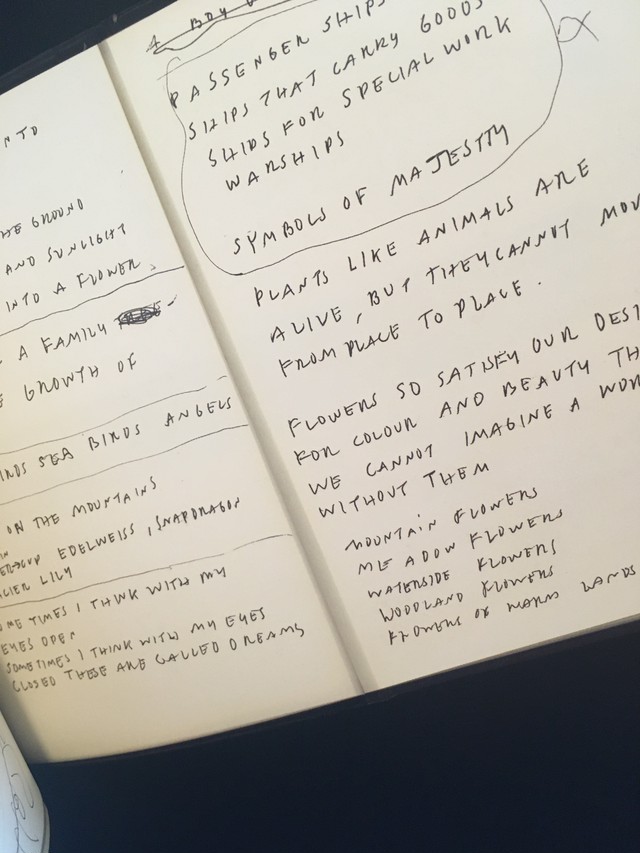 HE GROUND
AND SUNLIGHT
INTO A FLOWER.
A FAMILY
GROWTH OF
SEA BIRDS ANGELS
ON THE MOUNTAINS
EDELWEISS, SNAPDRAGON
LILY
TIMES I THINK WITH MY
EYES OPEN
SOMETIMES I THINK WITH MY EYES
CLOSED THESE ARE CALLED DREAMS
A BOY
PASSENGER SHIPS
SHIPS THAT CARRY GOODS
SHIPS FOR SPECIAL WORK
WARSHIPS
SYMBOLS OF MAJESTTY
PLANTS LIKE ANIMALS ARE
ALIVE, BUT THEY CANNOT MOV
FROM PLACE TO PLACE.
FLOWERS SO SATISFY OUR DESI
FOR COLOUR AND BEAUTY TH
WE CANNOT IMAGINE A WOR
WITHOUT THEM
MOUNTAIN FLOWERS
MEADOW FLOWERS
WATERSIDE FLOWERS
WOODLAND FLOWERS
FLOWERS OF WARM LANDS